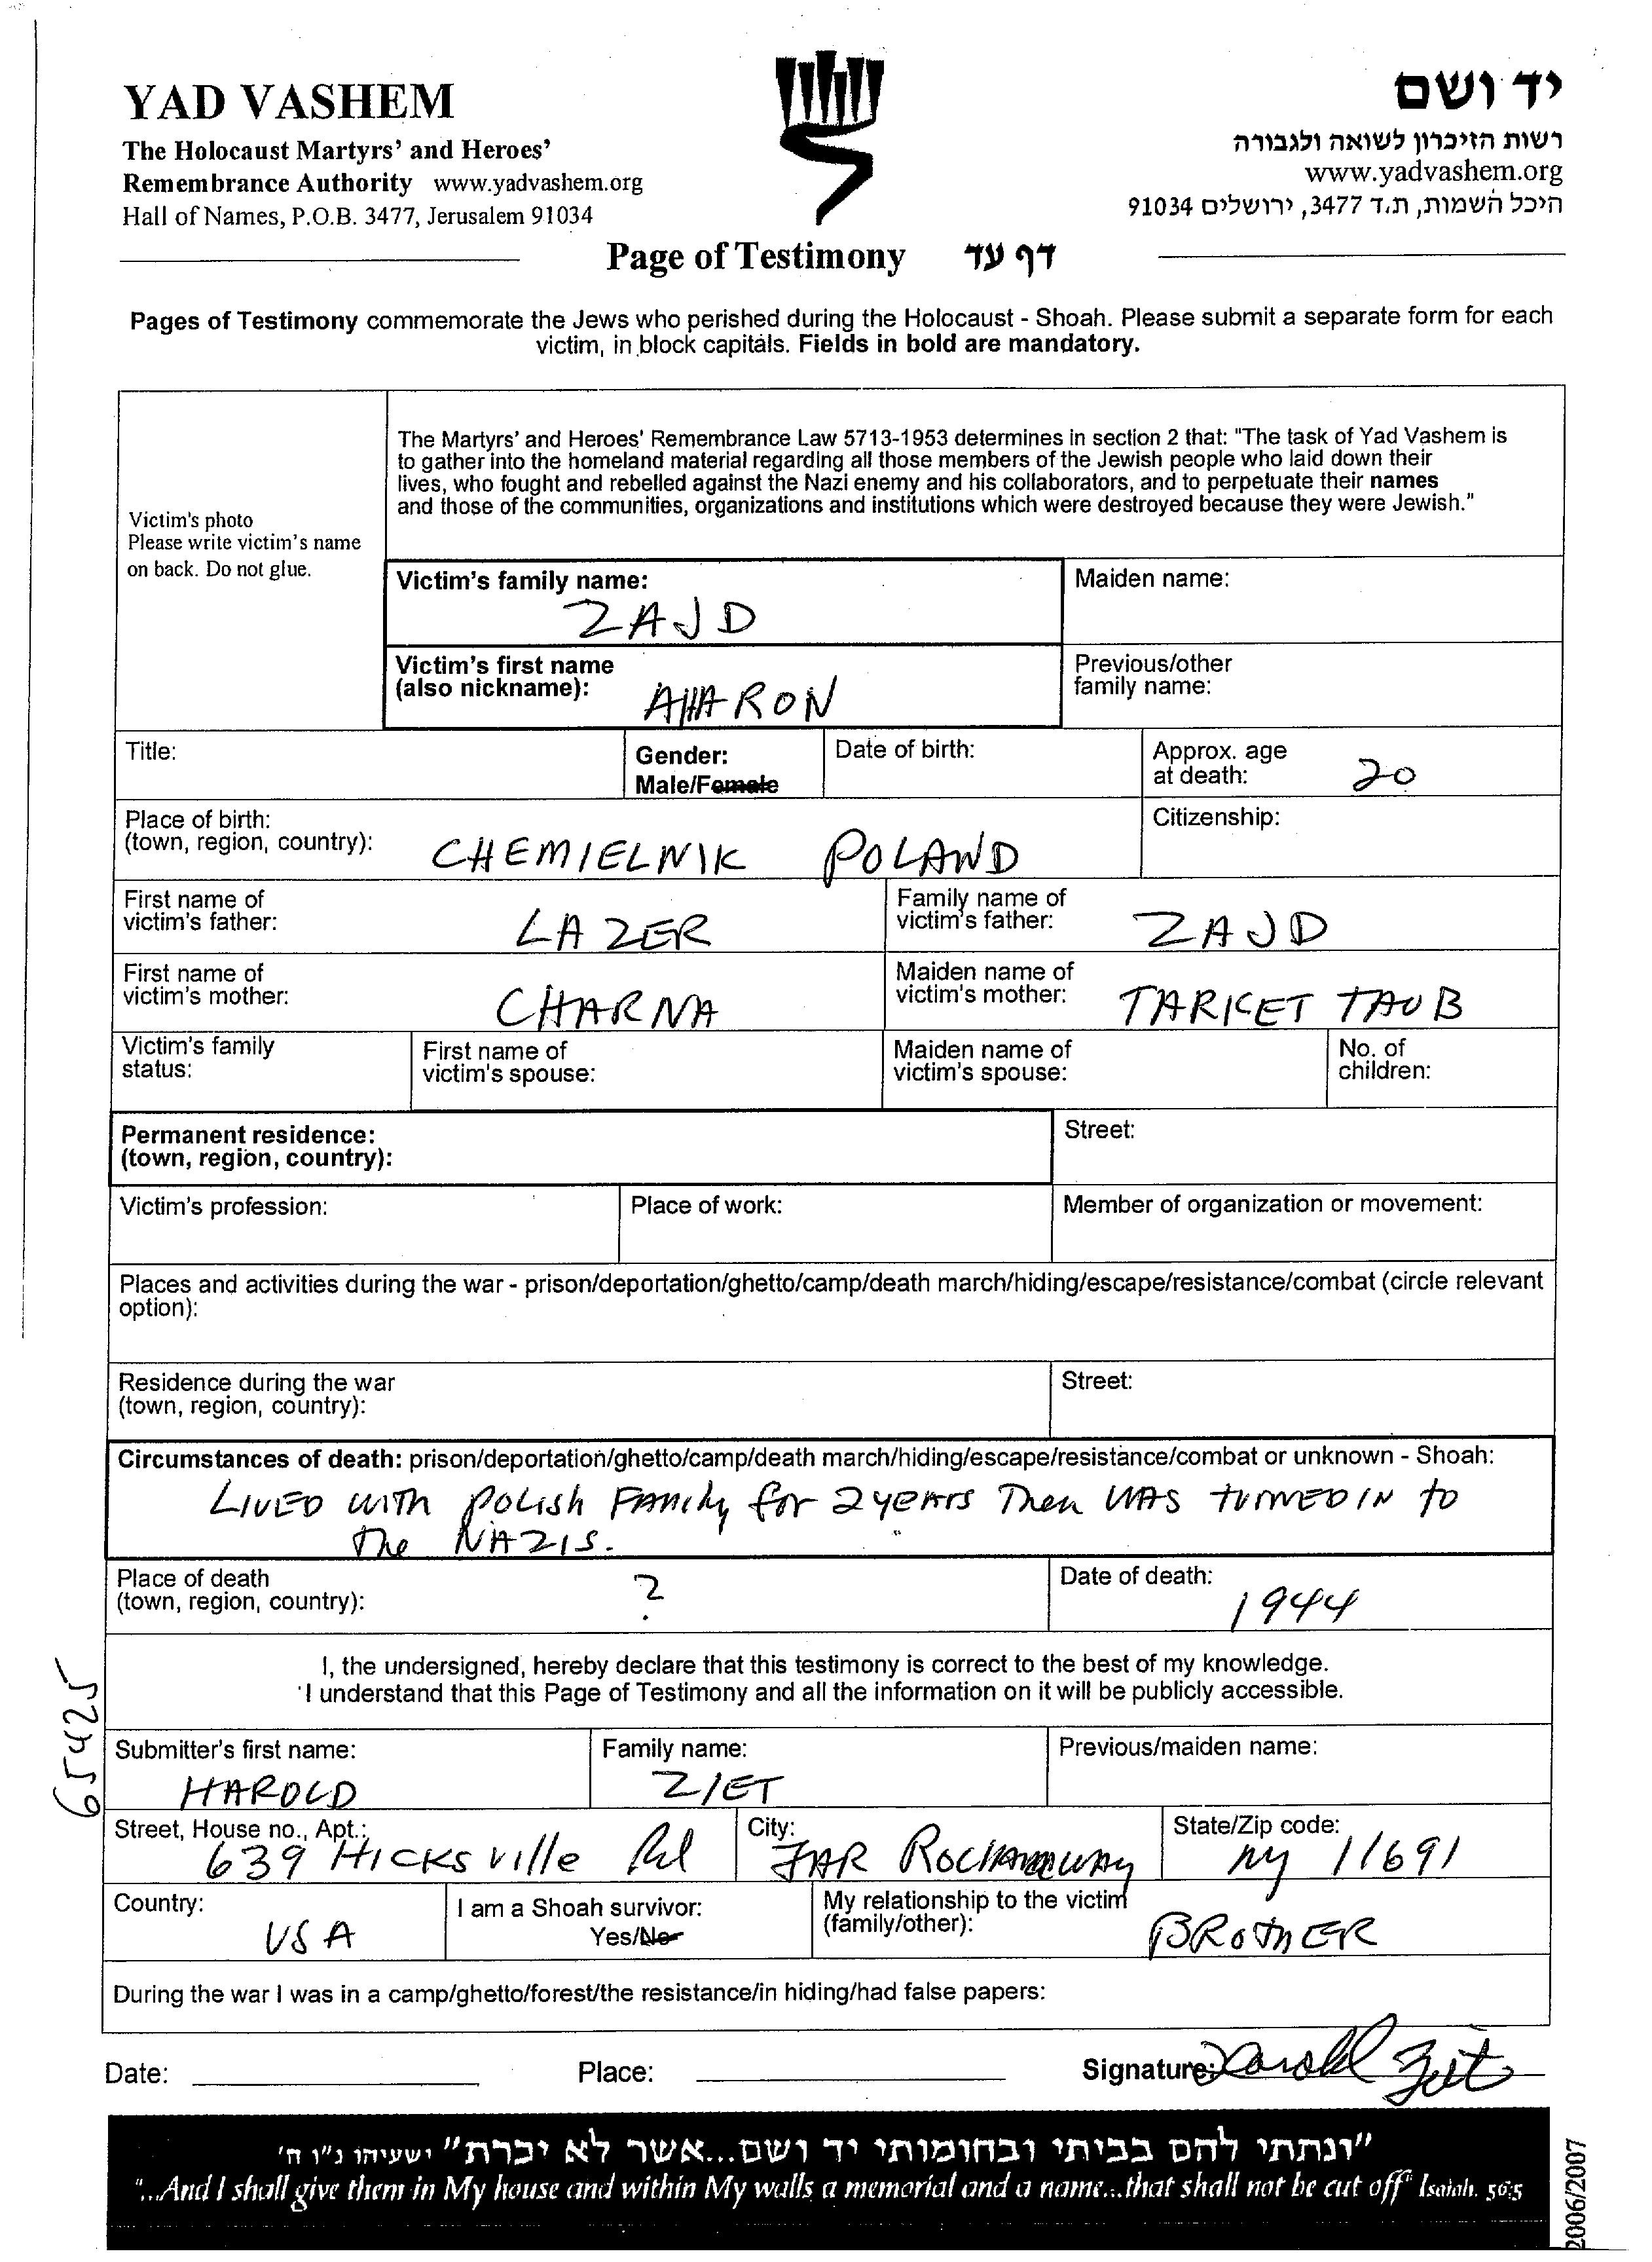 YAD VASHEM
The Holocaust Martyrs' and Heroes'
Remembrance Authority www.yadvashem.org
Hall of Names, P.O.B. 3477, Jerusalem 91034
יד ושם
רשות הזיכרון לשואה ולגבורה
www.yadvashem.org
היכל השמות, ת.ד 3477, ירושלים 91034
Page of Testimony דף עד
Pages of Testimony commemorate the Jews who perished during the Holocaust - Shoah. Please submit a separate form for each
victim, in block capitals. Fields in bold are mandatory.
The Martyrs' and Heroes' Remembrance Law 5713-1953 determines in section 2 that: "The task of Yad Vashem is
to gather into the homeland material regarding all those members of the Jewish people who laid down their
lives, who fought and rebelled against the Nazi enemy and his collaborators, and to perpetuate their names
and those of the communities, organizations and institutions which were destroyed because they were Jewish."
Victim's photo
Please write victim's name
on back. Do not glue.
Victim's family name:
ZAJD
Maiden name:
Victim's first name
(also nickname):
AHARON
Previous/other
family name:
Title:
Gender:
Male/Female
Date of birth:
Approx. age
at death:
20
Place of birth:
(town, region, country):
CHEMIELNIK POLAND
Citizenship:
First name of
victim's father:
LAZER
Family name of
victim's father:
ZAJD
First name of
victim's mother:
CHARNA
Maiden name of
victim's mother:
TARKET TAUB
Victim's family
status:
First name of
victim's spouse:
Maiden name of
victim's spouse:
No. of
children:
Permanent residence:
(town, region, country):
Street:
Victim's profession:
Place of work:
Member of organization or movement:
Places and activities during the war - prison/deportation/ghetto/camp/death march/hiding/escape/resistance/combat (circle relevant
option):
Residence during the war
(town, region, country):
Street:
Circumstances of death: prison/deportation/ghetto/camp/death march/hiding/escape/resistance/combat or unknown - Shoah:
LIVED with Polish FAMily for 2 yEArs Then WAS tURNED IN to
The NAZIS.
Place of death
(town, region, country):
?
Date of death:
1944
I, the undersigned, hereby declare that this testimony is correct to the best of my knowledge.
I understand that this Page of Testimony and all the information on it will be publicly accessible.
65425
Submitter's first name:
HAROLD
Family name:
ZIET
Previous/maiden name:
Street, House no., Apt.:
639 HICKSville Rd
City:
FAR ROCKAWAY
State/Zip code:
NY 11691
Country:
USA
I am a Shoah survivor:
Yes/No
My relationship to the victim
(family/other):
BROTHER
During the war I was in a camp/ghetto/forest/the resistance/in hiding/had false papers:
Date:
Place:
Signature: Harold Ziet
"ונתתי להם בביתי ובחומותי יד ושם...אשר לא יכרת" ישעיהו נ"ו ה'
"...And I shall give them in My house and within My walls a memorial and a name...that shall not be cut off" Isaiah. 56:5
2006/2007